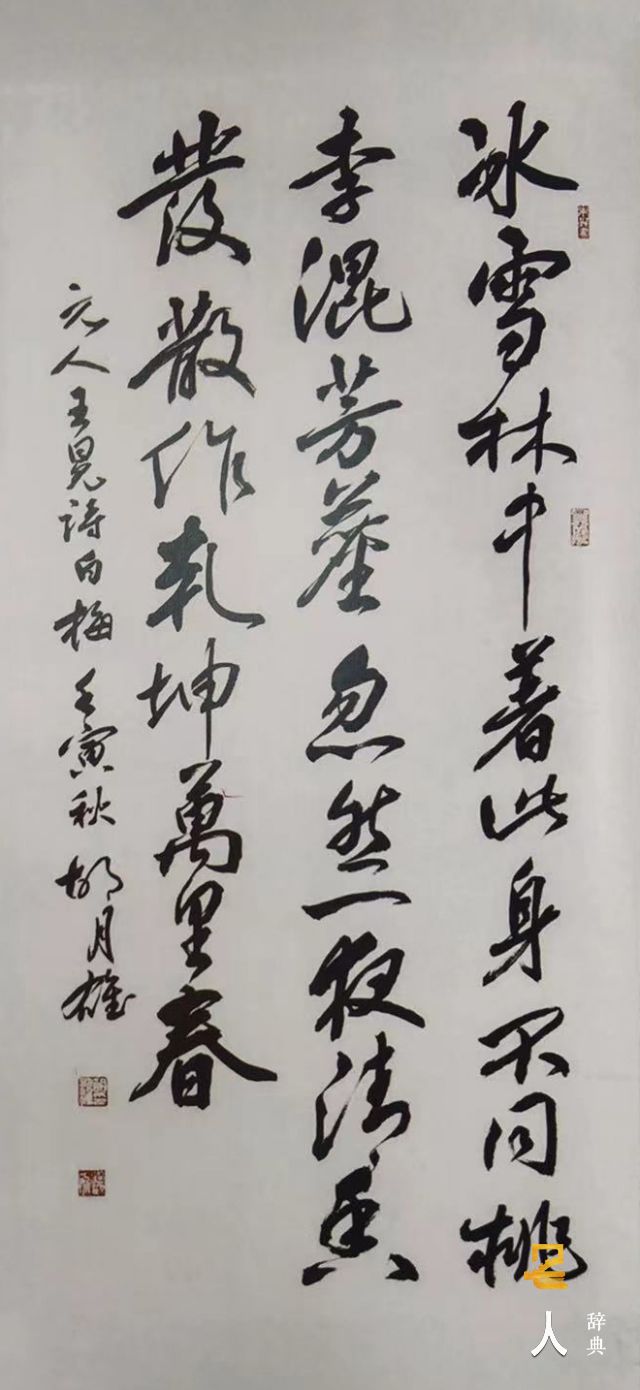 冰雪林中著此身不同桃
李混芳塵忽然一夜清香
發散作乾坤萬里春
元人王冕詩白梅壬寅秋胡月雄
人
辞典